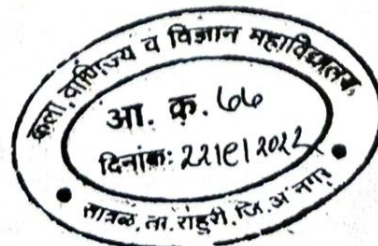 कला, वाणिज्य व विज्ञान महाविद्यालय,
आ. क्र. ७७
दिनांक: २२/९/२०२२
सात्रळ, ता. राहुरी, जि. अ नगर